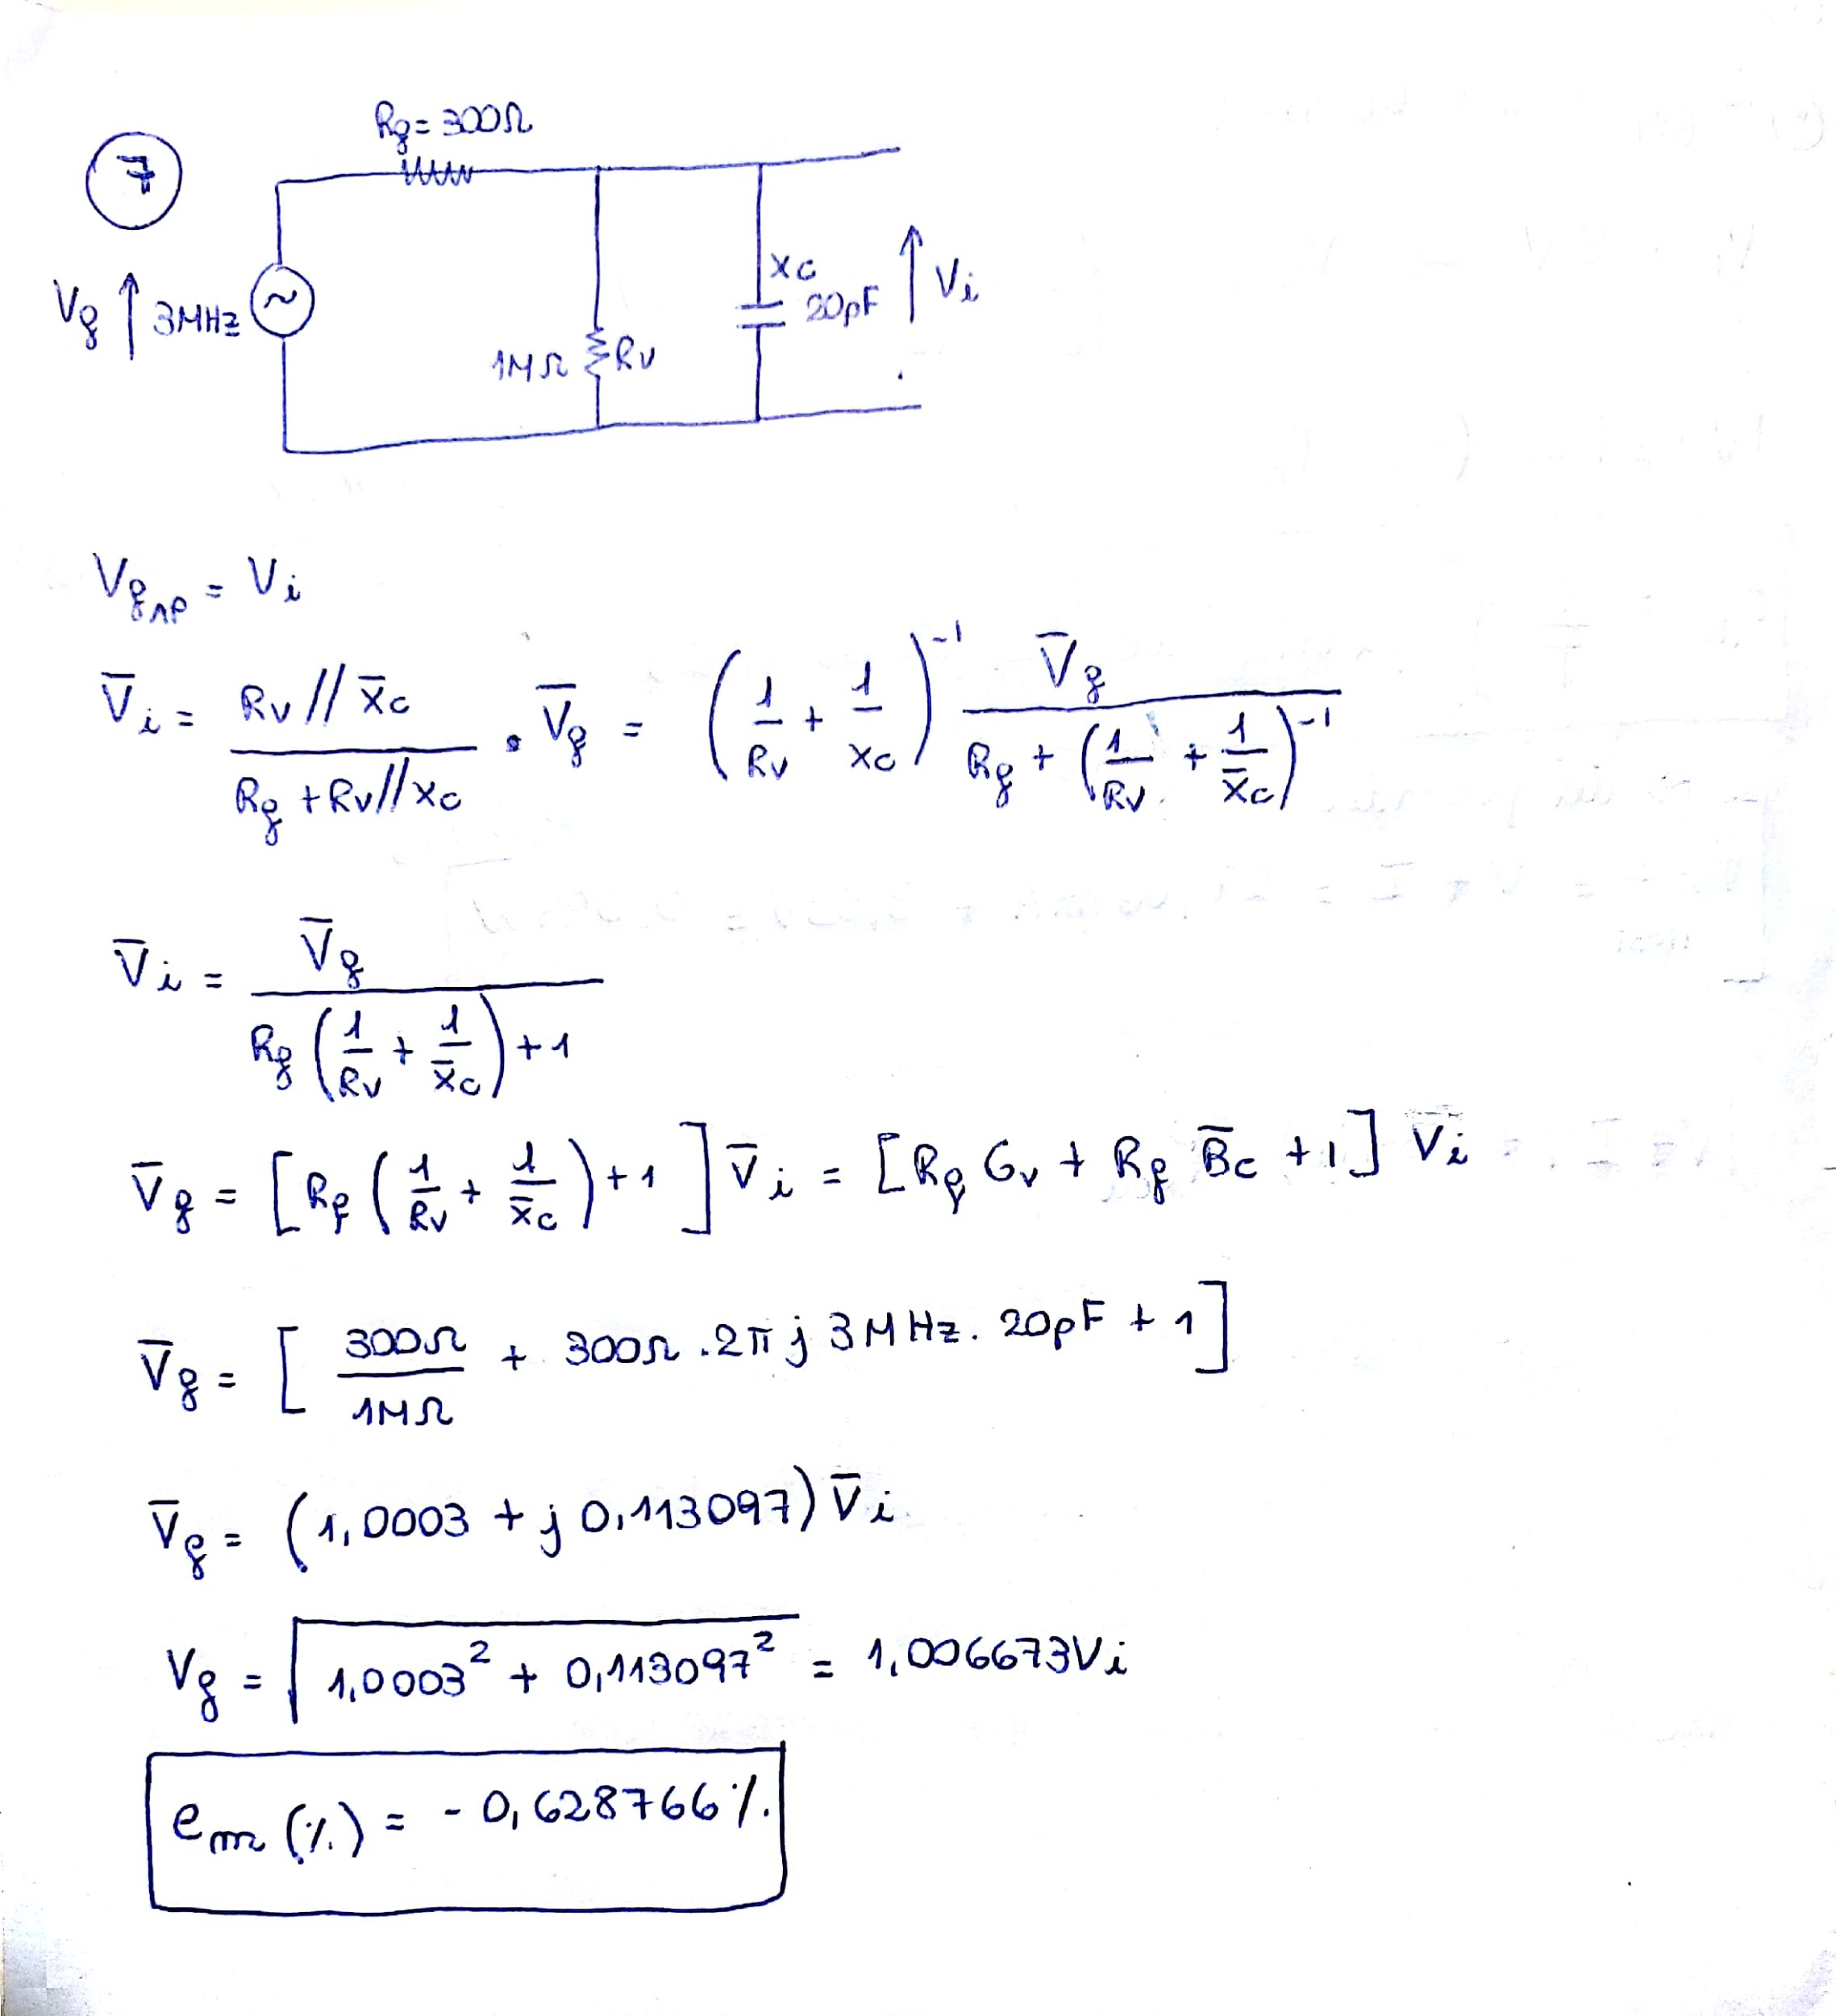 7
Rg = 300Ω
Vg ↑ 3MHz ~
1MΩ Rv
Xc
20pF
↑ Vi
Vg₁ₚ = Vi
V̄i = Rv // X̄c / Rg + Rv // Xc . V̄g = (1/Rv + 1/Xc)⁻¹ V̄g / Rg + (1/Rv + 1/X̄c)⁻¹
V̄i = V̄g / Rg (1/Rv + 1/X̄c) + 1
V̄g = [Rg (1/Rv + 1/X̄c) + 1] V̄i = [Rg Gv + Rg B̄c + 1] V̄i
V̄g = [300Ω / 1MΩ + 300Ω . 2π j 3MHz . 20pF + 1]
V̄g = (1,0003 + j 0,113097) V̄i
Vg = √(1,0003² + 0,113097²) = 1,006673Vi
em (%) = - 0,628766 %